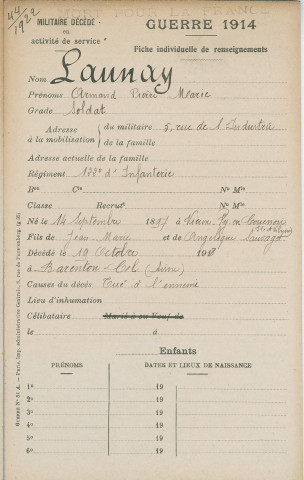 MORT POUR LA FRANCE
MILITAIRE DÉCÉDÉ
en
activité de service
GUERRE 1914
Fiche individuelle de renseignements
Nom Launay
Prénoms Armand Pierre Marie
Grade Soldat
Adresse à la mobilisation du militaire 5, rue de l'Industrie
de la famille
Adresse actuelle de la famille
Régiment d'Infanterie
Bon Cie Nº Mle
Classe Recrutt Nº Mle
Né le 14 Septembre 1897 à Vieux-Vy-s/-Couesnon
Fils de Jean Marie et de Angélique Sauvage
Décédé le 19 Octobre 1918
à Barenton-Cel (Aisne)
Causes du décès Tué à l'ennemi
Lieu d'inhumation
Célibataire Marié à ou Veuf de
le à
Enfants
PRÉNOMS DATES ET LIEUX DE NAISSANCE
1º 19
2º 19
3º 19
4º 19
5º 19
6º 19